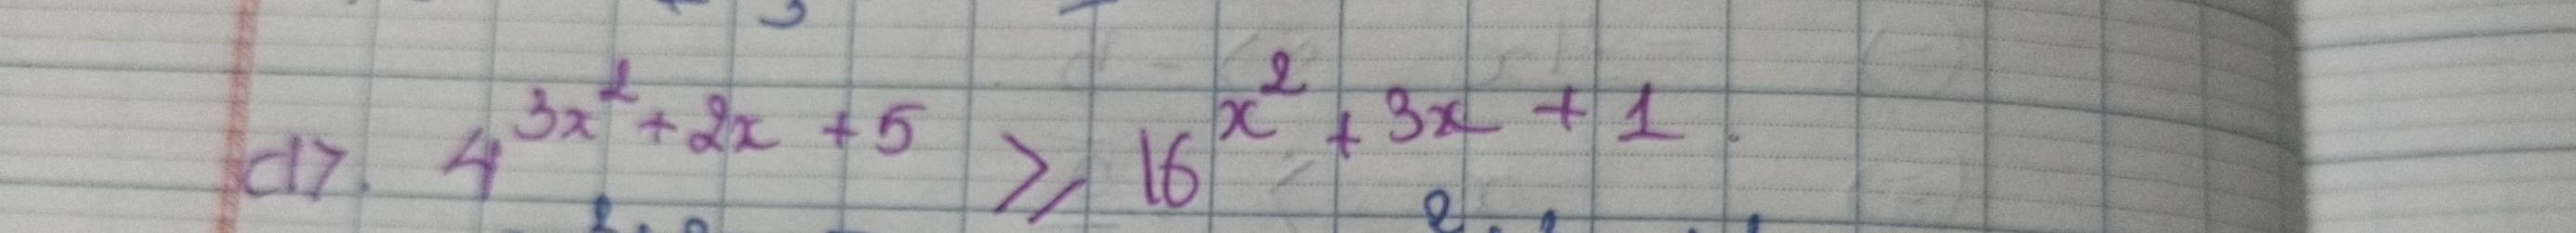 d>. 4^{3x^2 + 2x + 5} ⩾ 16^{x^2 + 3x + 1}.